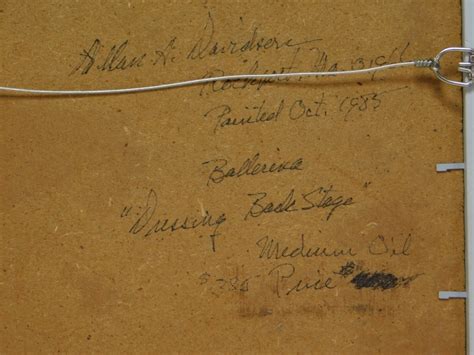 Allan A. Davidson
Rockport, Ma
Painted Oct. 1985
Ballerina
"Dressing Back Stage"
Medium Oil
$385 Price